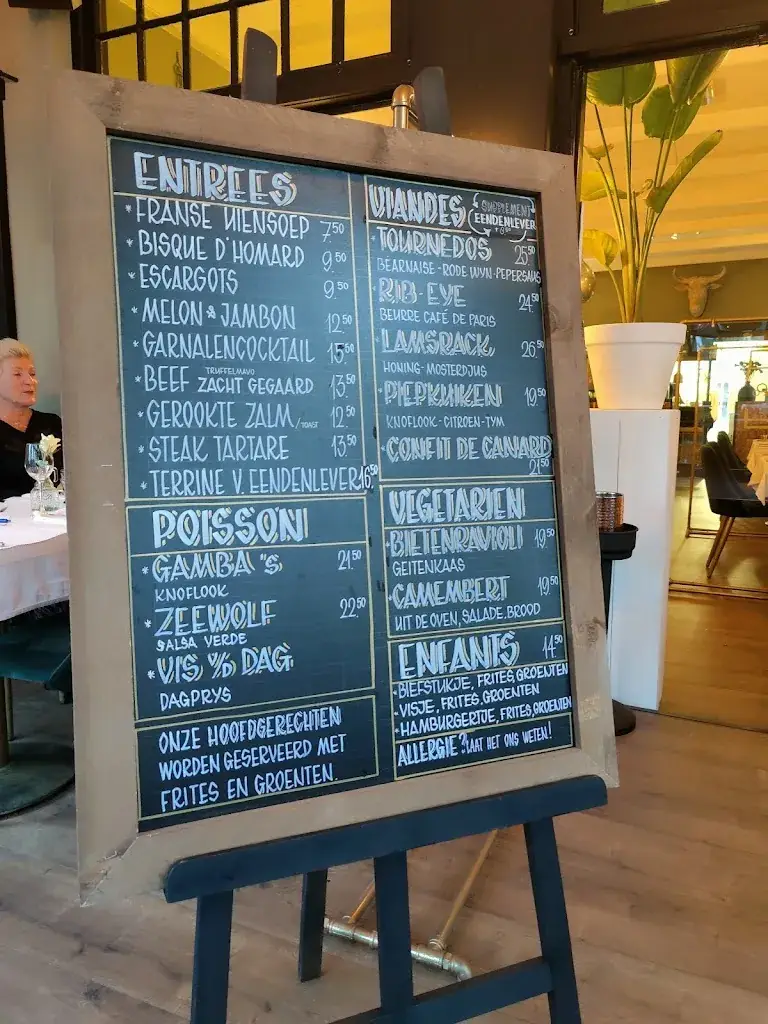 ENTREES
* FRANSE UIENSOEP 7.50
* BISQUE D'HOMARD 9.50
* ESCARGOTS 9.50
* MELON & JAMBON 12.50
* GARNALENCOCKTAIL 15.50
* BEEF TRUFFELMAYO ZACHT GEGAARD 13.50
* GEROOKTE ZALM /TOAST 12.50
* STEAK TARTARE 13.50
* TERRINE V. EENDENLEVER 16.50
POISSON
* GAMBA'S 21.50
KNOFLOOK
* ZEEWOLF 22.50
SALSA VERDE
* VIS % DAG
DAGPRYS
ONZE HOOFDGERECHTEN
WORDEN GESERVEERD MET
FRITES EN GROENTEN.
VIANDES
SUPPLEMENT
EENDENLEVER
* TOURNEDOS 25.50
BEARNAISE - RODE WYN - PEPERSAUS
* RIB-EYE 24.50
BEURRE CAFÉ DE PARIS
* LAMSRACK, 26.50
HONING-MOSTERDJUS
* PIEPKUIKEN 19.50
KNOFLOOK-CITROEN-TYM
* CONFIT DE CANARD
21.50
VEGETARIEN
* BIETENRAVIOLI 19.50
GEITENKAAS
* CAMEMBERT 19.50
UIT DE OVEN, SALADE, BROOD
ENFANTS 14.50
* BIEFSTUKJE, FRITES, GROENTEN
* VISJE, FRITES, GROENTEN
* HAMBURGERTJE, FRITES, GROENTEN
ALLERGIE? LAAT HET ONS WETEN!